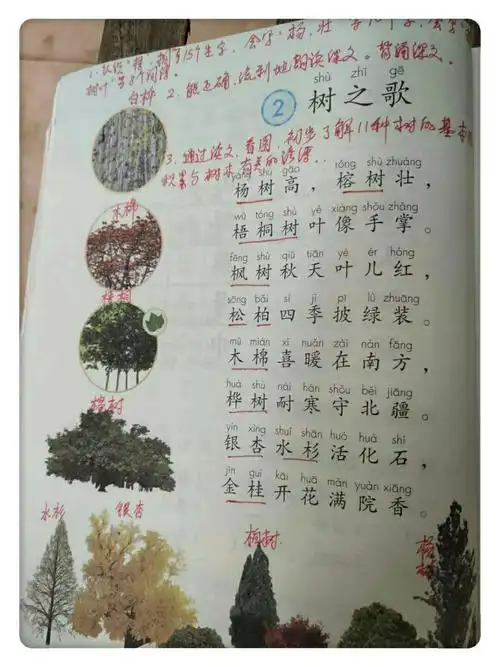 1. 认识“梧、桐”等15个生字，会写“杨、壮”等10个字，会写
树叶”等8个词语。
白桦 2. 能正确、流利地朗读课文。背诵课文。
shù zhī gē
2 树之歌
3. 通过课文、看图，初步了解11种树的基本
积累与树木有关的谚语。
yáng shù gāo róng shù zhuàng
杨树高，榕树壮，
木棉
wú tóng shù yè xiàng shǒu zhǎng
梧桐树叶像手掌。
fēng shù qiū tiān yè ér hóng
枫树秋天叶儿红，
梧桐
sōng bǎi sì jì pī lǜ zhuāng
松柏四季披绿装。
mù mián xǐ nuǎn zài nán fāng
木棉喜暖在南方，
榕树
huà shù nài hán shǒu běi jiāng
桦树耐寒守北疆。
yín xìng shuǐ shān huó huà shí
银杏水杉活化石，
jīn guì kāi huā mǎn yuàn xiāng
金桂开花满院香。
水杉 银杏
柏树